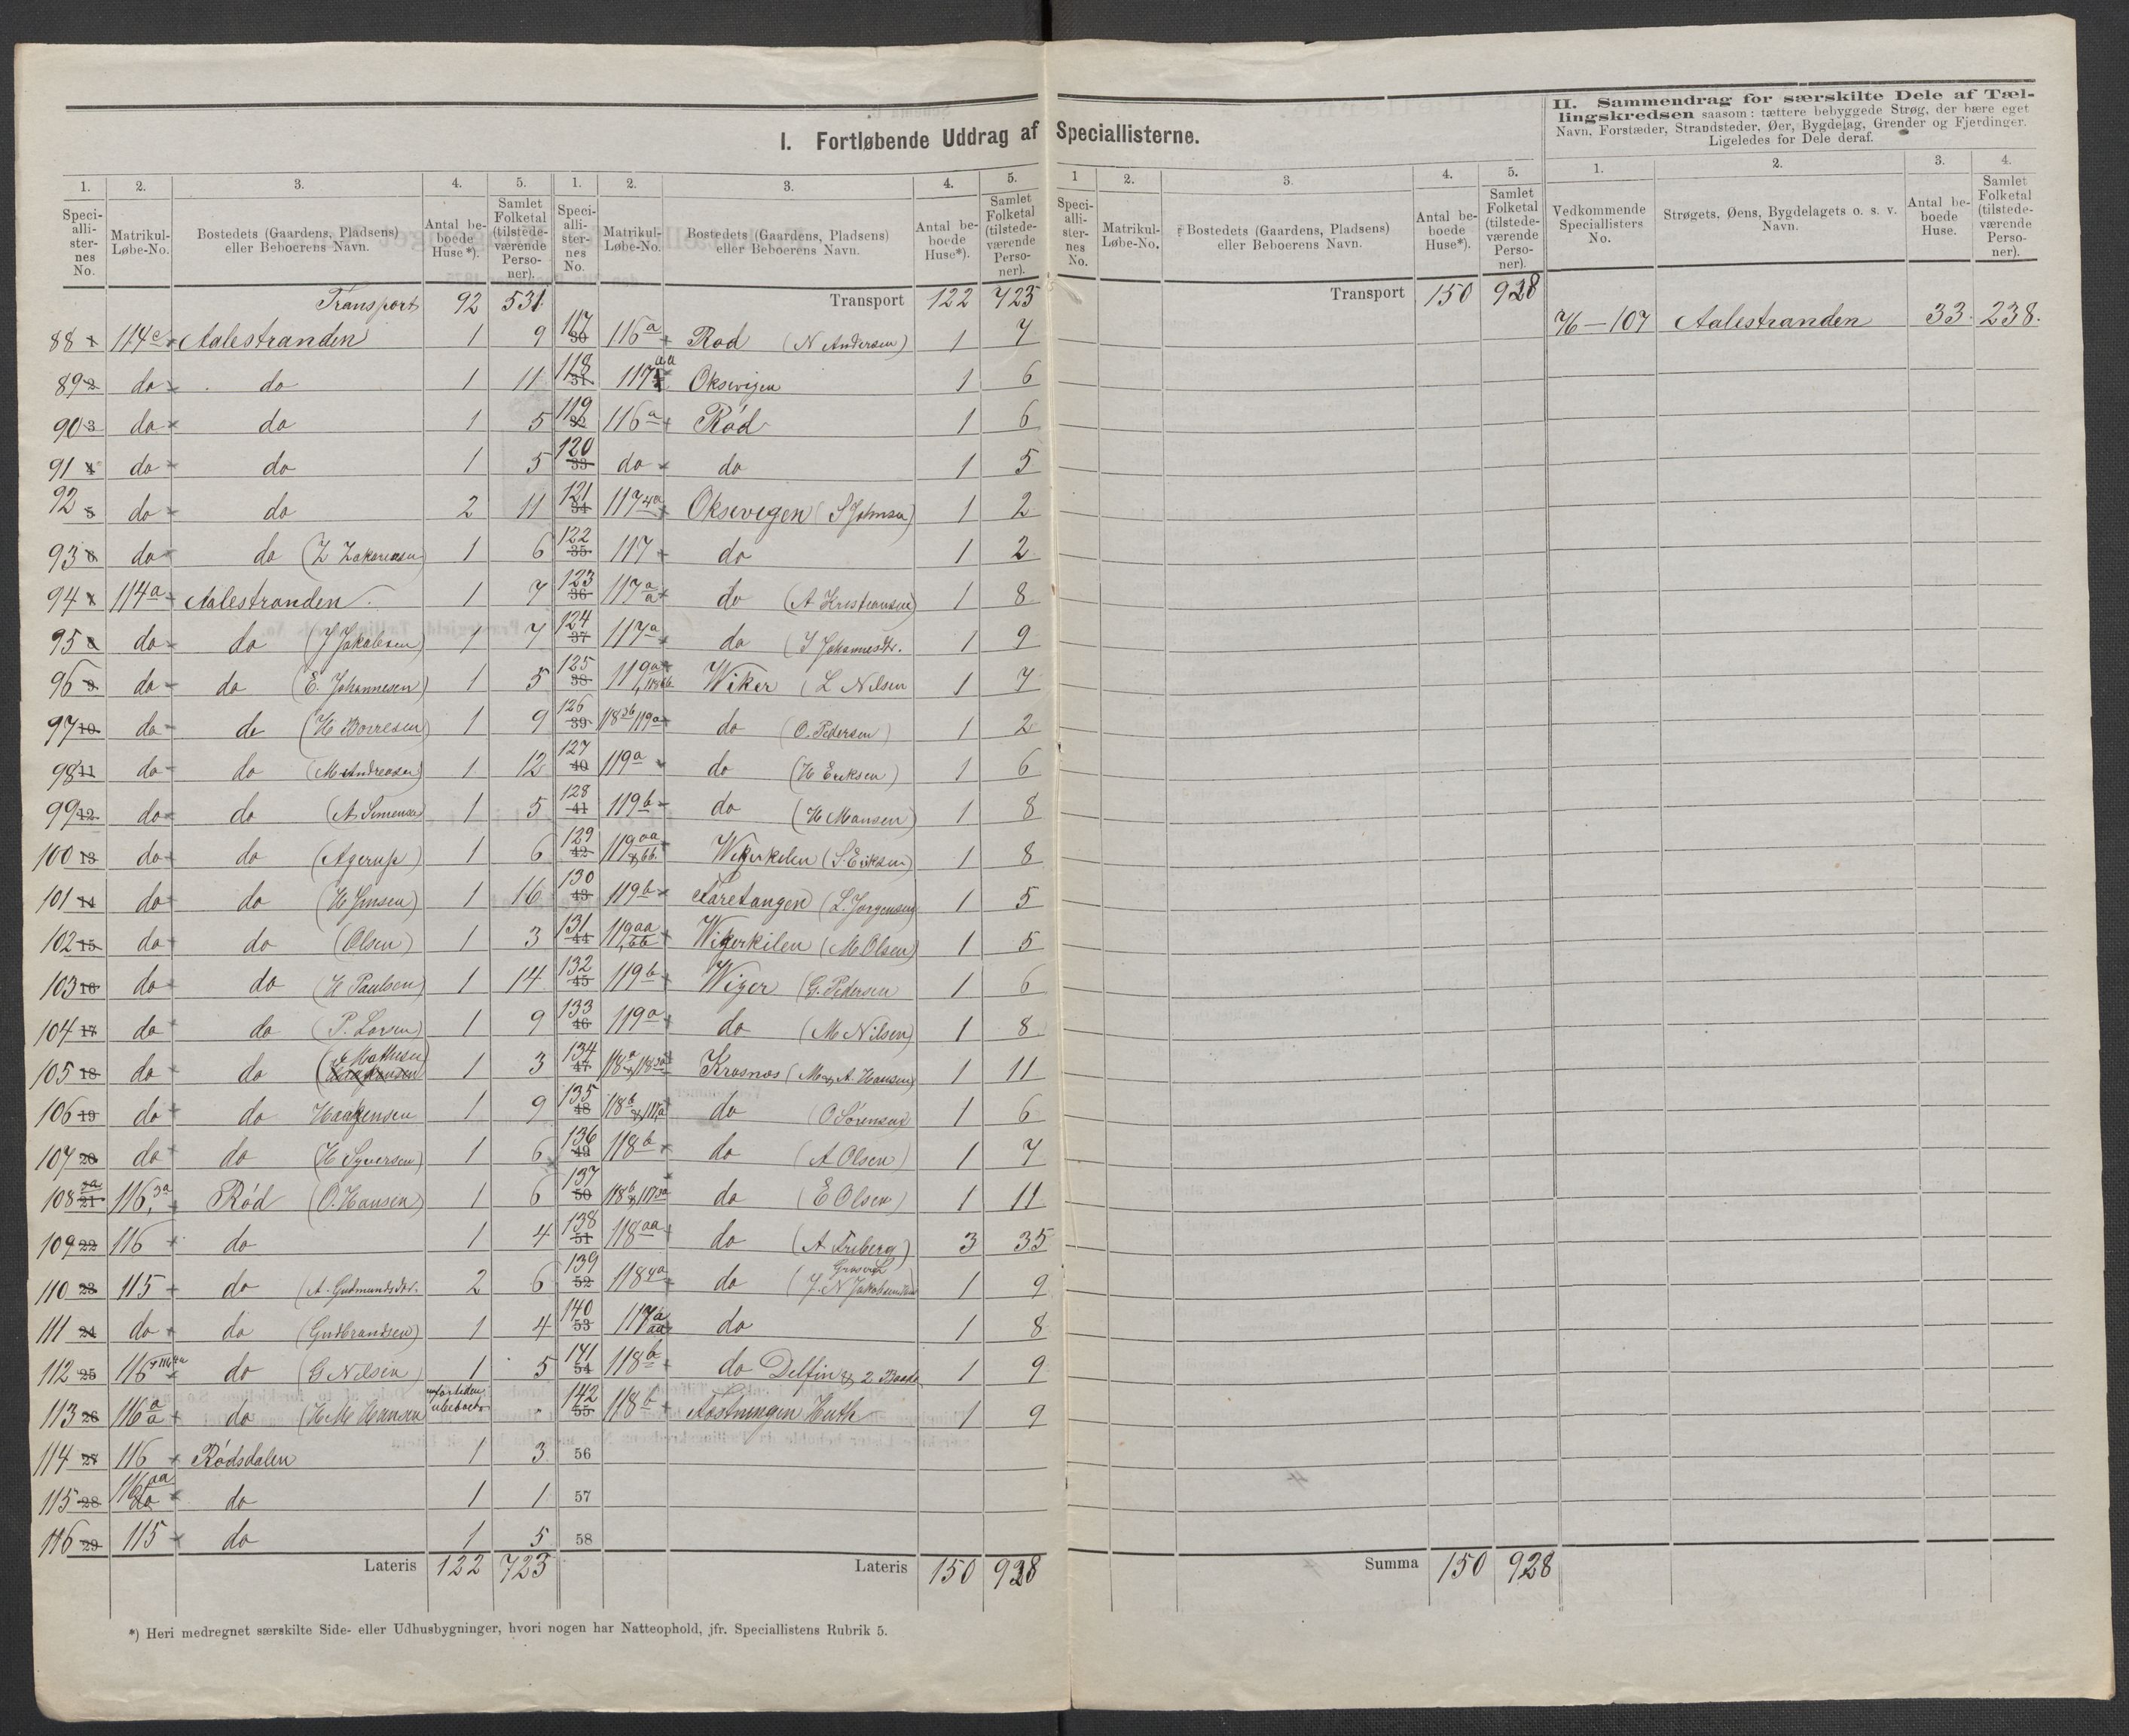 I. Fortløbende Uddrag af Speciallisterne.
1. 2. 3. 4. 5.
Speciallisternes No. Matrikul-Løbe-No. Bostedets (Gaardens, Pladsens) eller Beboerens Navn. Antal beboede Huse*). Samlet Folketal (tilstedeværende Personer).
Transport 92 531
88 1 114c Aalestranden 1 9
89 2 do do 1 11
90 3 do do 1 5
91 4 do do 1 5
92 5 do do 2 11
93 6 do do (Z Zakariasen) 1 6
94 7 114a Aalestranden 1 7
95 8 do do (J Jakobsen) 1 7
96 9 do do (E. Johannesen) 1 5
97 10 do do (H Borresen) 1 9
98 11 do do (M Andreasen) 1 12
99 12 do do (A Simensen) 1 5
100 13 do do (Agerup) 1 6
101 14 do do (H Jensen) 1 16
102 15 do do (Olsen) 1 3
103 16 do do (H Paulsen) 1 14
104 17 do do (P. Larsen) 1 9
105 18 do do (Mathisen) 1 3
106 19 do do Haakensen 1 9
107 20 do do (H Syversen) 1 6
108 21 116,3a Rød (O. Hansen) 1 6
109 22 116 do 1 4
110 23 115 do (A. Gudmundsdtr. 2 6
111 24 do do (Gudbrandsen) 1 4
112 25 116 do (G Nilsen) 1 5
113 26 116 a a do (H M Hansen ubeboet
114 27 116 Rødsdalen 1 3
115 28 116aa do 1 1
116 29 115 do 1 5
Lateris 122 723
1. 2. 3. 4. 5.
Speciallisternes No. Matrikul-Løbe-No. Bostedets (Gaardens, Pladsens) eller Beboerens Navn. Antal beboede Huse*). Samlet Folketal (tilstedeværende Personer).
Transport 122 723
117 30 116a Rød (N Andersen) 1 7
118 31 117 aa Oksevigen 1 6
119 32 116a Rød 1 6
120 33 do do 1 5
121 34 117 4a Oksevigen (S Johnsen) 1 2
122 35 117 do 1 2
123 36 117 a a do (A Kristiansen) 1 8
124 37 117a do (S Johannesdtr. 1 9
125 38 119a Wiker (L Nilsen 1 7
126 39 118 119a do (O. Pedersen) 1 2
127 40 119a do (H Eriksen) 1 6
128 41 119b do (H Mansen) 1 8
129 42 119 aa & bb. Wigerkilen (S. Eriksen) 1 8
130 43 119b Taretangen (L. Jørgensen) 1 5
131 44 119 aa bb Wigerkilen (M Olsen) 1 5
132 45 119b Wiger (G. Pedersen 1 6
133 46 119a do (M Nilsen) 1 8
134 47 118a & 118 Krosnæs (M & A. Hansen) 1 11
135 48 118b & 117a do O Sørensen 1 6
136 49 118b do (A Olsen) 1 7
137 50 118b & 117 3a do (E Olsen) 1 11
138 51 118aa do (A Friberg) 3 35
139 52 118 4a do (J. N Jakobsen 1 9
140 53 117 a aa do 1 8
141 54 118b do Delfin & 2 Baade 1 9
142 55 118b Huth 1 9
56
57
58
Lateris 150 928
1 2. 3. 4. 5.
Speciallisternes No. Matrikul-Løbe-No. Bostedets (Gaardens, Pladsens) eller Beboerens Navn. Antal beboede Huse*). Samlet Folketal (tilstedeværende Personer).
Transport 150 928
Summa 150 928
II. Sammendrag for særskilte Dele af Tællingskredsen saasom: tættere bebyggede Strøg, der bære eget
Navn, Forstæder, Strandsteder, Øer, Bygdelag, Grender og Fjerdinger.
Ligeledes for Dele deraf.
1. 2. 3. 4.
Vedkommende Speciallisters No. Strøgets, Øens, Bygdelagets o. s. v. Navn. Antal beboede Huse. Samlet Folketal (tilstedeværende Personer).
76—107 Aalestranden 33. 238.
*) Heri medregnet særskilte Side- eller Udhusbygninger, hvori nogen har Natteophold, jfr. Speciallistens Rubrik 5.